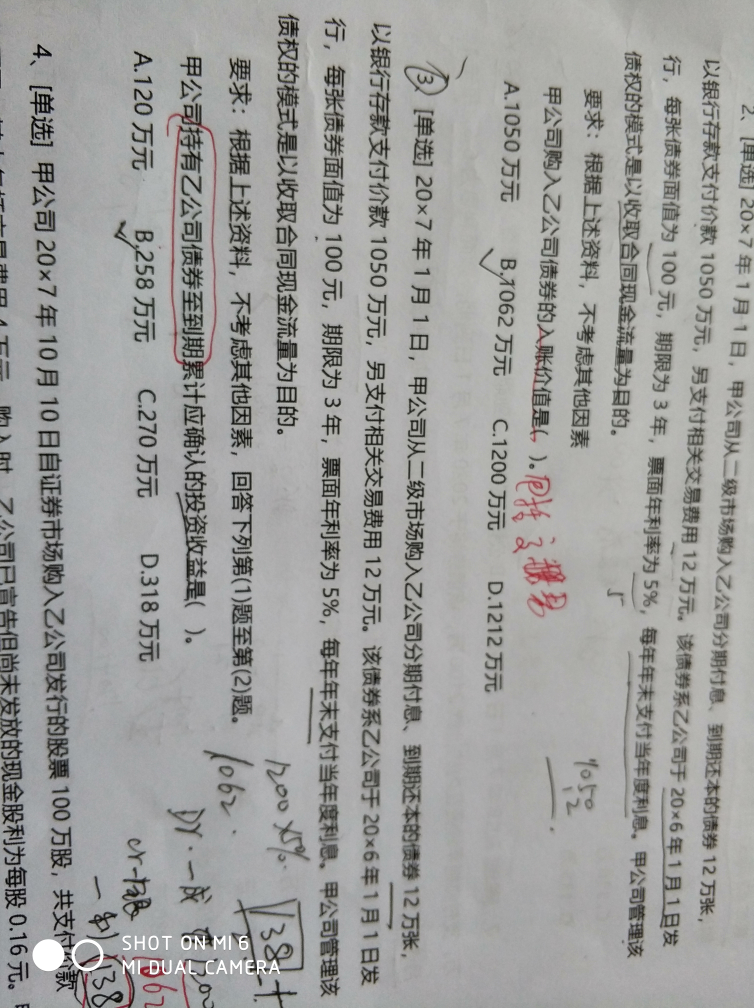 2、[单选] 20×7 年 1 月 1 日，甲公司从二级市场购入乙公司分期付息、到期还本的债券 12 万张，
以银行存款支付价款 1050 万元，另支付相关交易费用 12 万元。该债券系乙公司于 20×6 年 1 月 1 日发
行，每张债券面值为 100 元，期限为 3 年，票面年利率为 5%，每年年末支付当年度利息。甲公司管理该
债权的模式是以收取合同现金流量为目的。
要求：根据上述资料，不考虑其他因素
甲公司购入乙公司债券的入账价值是( )。
A.1050 万元 B.1062 万元 C.1200 万元 D.1212 万元
1050
12
3、[单选] 20×7 年 1 月 1 日，甲公司从二级市场购入乙公司分期付息、到期还本的债券 12 万张，
以银行存款支付价款 1050 万元，另支付相关交易费用 12 万元。该债券系乙公司于 20×6 年 1 月 1 日发
行，每张债券面值为 100 元，期限为 3 年，票面年利率为 5%，每年年末支付当年度利息。甲公司管理该
债权的模式是以收取合同现金流量为目的。
要求：根据上述资料，不考虑其他因素，回答下列第(1)题至第(2)题。
甲公司持有乙公司债券至到期累计应确认的投资收益是( )。
A.120 万元 B.258 万元 C.270 万元 D.318 万元
1200×5%
138
1062
4、[单选] 甲公司 20×7 年 10 月 10 日自证券市场购入乙公司发行的股票 100 万股，共支付价款
购入时，乙公司已宣告但尚未发放的现金股利为每股 0.16 元。
SHOT ON MI 6
MI DUAL CAMERA